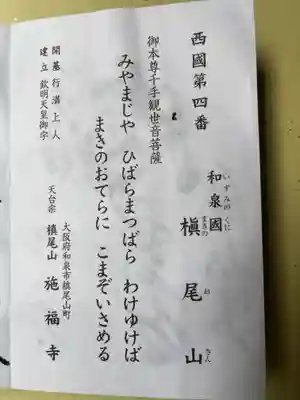 西國第四番
和泉國 槇尾山
いずみの くに まきの お さん
御本尊千手観世音菩薩
みやまじや ひばらまつばら わけゆけば
まきのおてらに こまぞいさめる
開基 行満上人
建立 欽明天皇御宇
大阪府和泉市槇尾山町
天台宗 槇尾山 施福寺